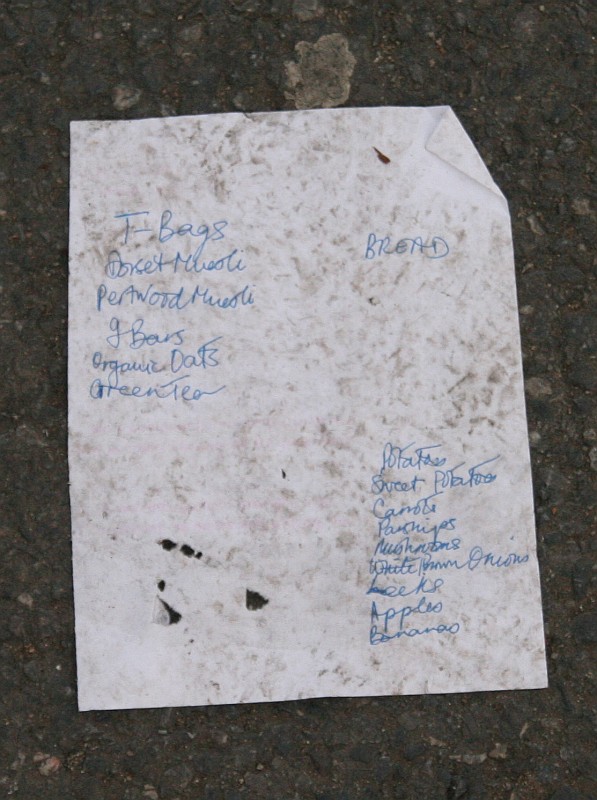 T-Bags
Dorset Muesli
Pertwood Muesli
9 Bars
Organic Oats
Green Tea
BREAD
Potatoes
Sweet Potatoes
Carrots
Parsnips
Mushrooms
White/Brown Onions
Leeks
Apples
Bananas